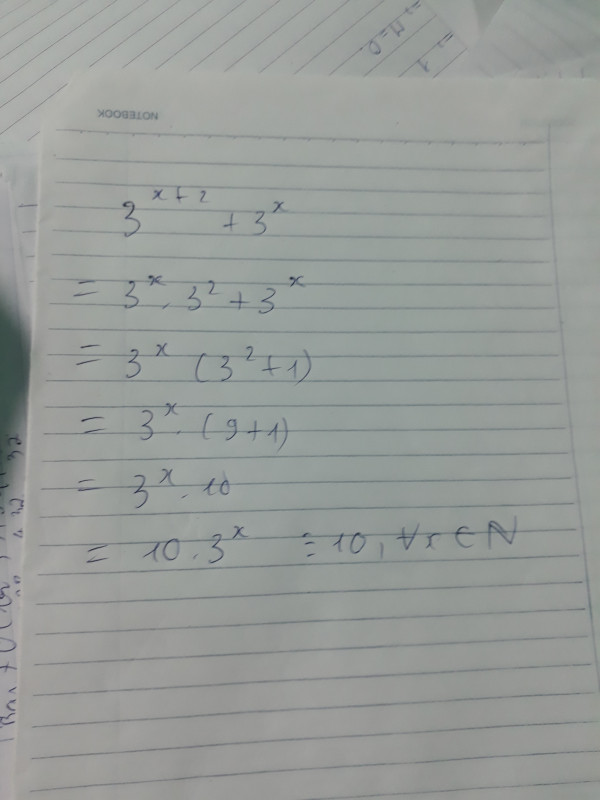 = M=0
= 1
NOTEBOOK
3^{x+2} + 3^x
= 3^x . 3^2 + 3^x
= 3^x (3^2+1)
= 3^x . (9+1)
= 3^x . 10
= 10 . 3^x ⋮ 10, ∀x ∈ N